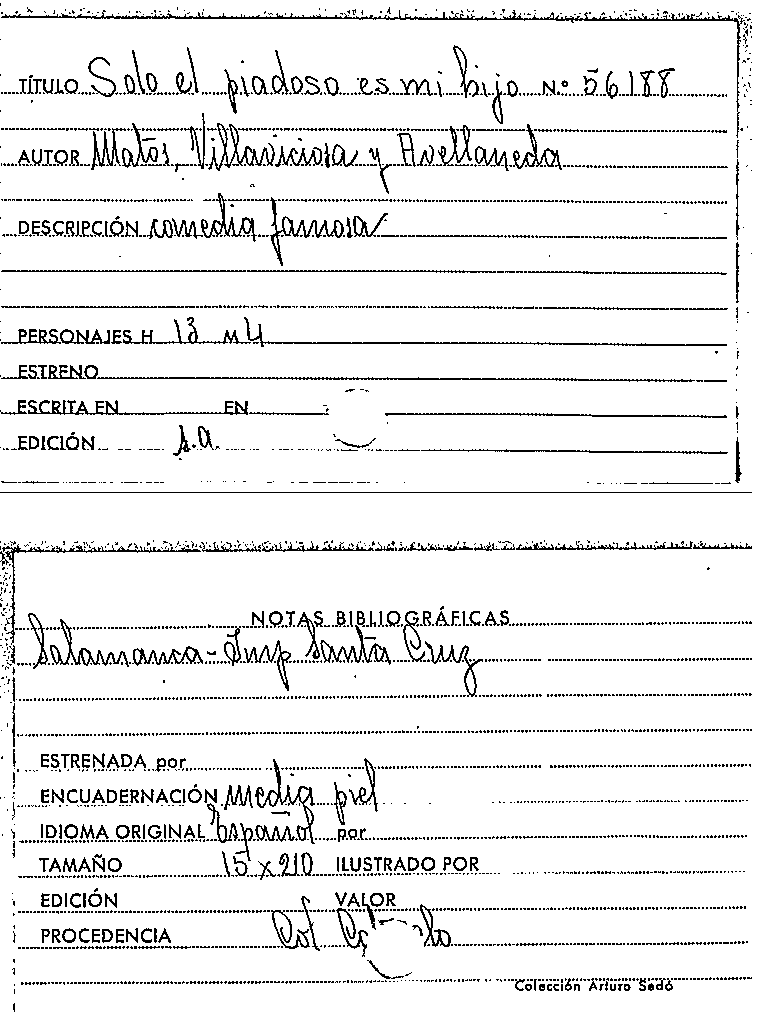 TÍTULO Solo el piadoso es mi hijo Nº 56188
AUTOR Matos, Villaviciosa y Avellaneda
DESCRIPCIÓN comedia famosa
PERSONAJES H 13 M 4
ESTRENO
ESCRITA EN EN
EDICIÓN s.a.
NOTAS BIBLIOGRÁFICAS
Salamanca - Imp Santa Cruz
ESTRENADA por
ENCUADERNACIÓN media piel
IDIOMA ORIGINAL Español por
TAMAÑO 15 x 210 ILUSTRADO POR
EDICIÓN VALOR
PROCEDENCIA Col
Colección Arturo Sedó